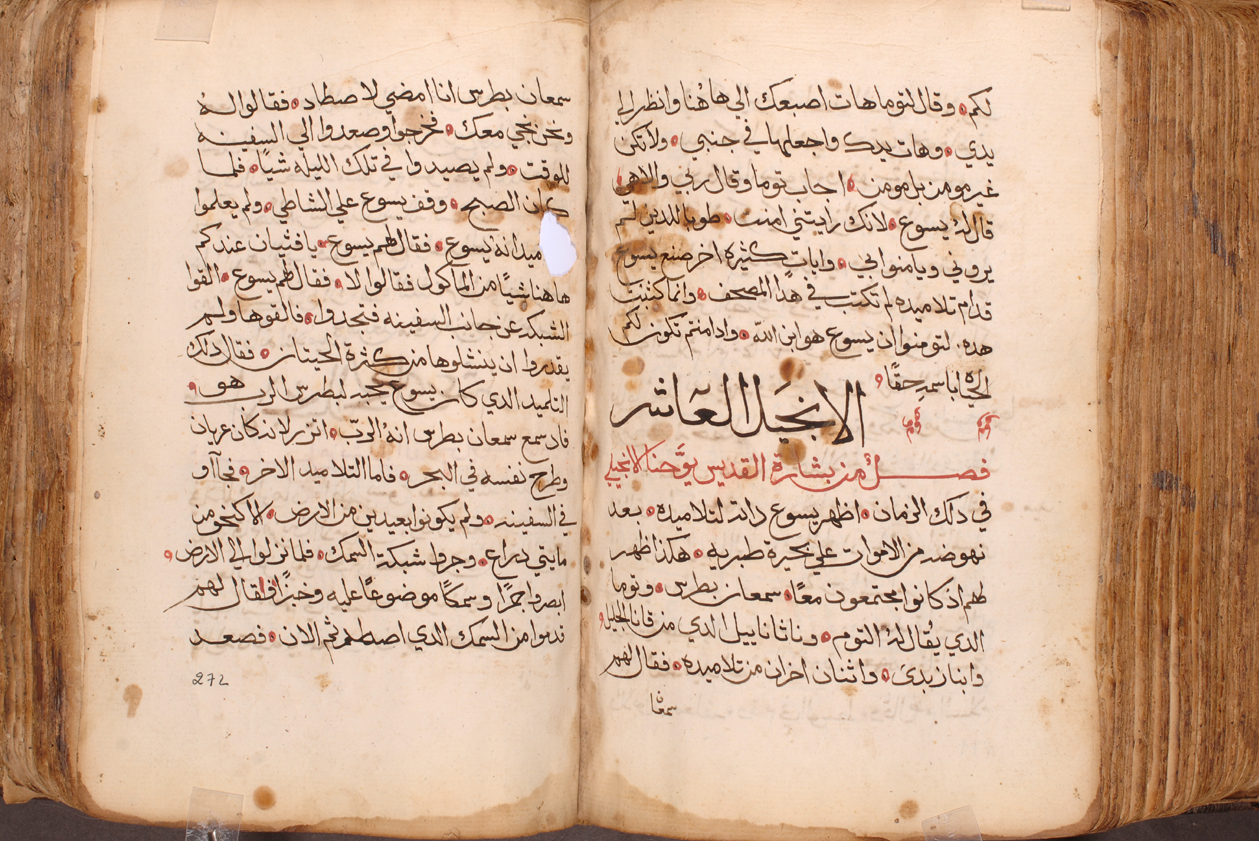 لكم وقال لتوما هات اصبعك الي هاهنا وانظر الي
يدي وهات يدك واجعلها في جنبي ولا تكن
غير مومن بل مومن اجاب توما وقال ربي والاهي
قال له يسوع لانك رايتني امنت طوبا للدين لم
يروني ويامنوا بي وايات كثيره اخر صنع يسوع
قدام تلاميده لم تكتب في هدا المصحف وانما كتبت
هده لتومنوا ان يسوع هو ابن الله وادا منتم تكون لكم
الحياه باسمه حقًا
الانجيل العاشر
فصل من بشارة القديس يوحنا الانجيلي
في دلك الزمان اظهر يسوع داته لتلاميده بعد
نهوضه من الاموات علي بحيرة طبريه هكدا ظهر
لهم اذ كانوا مجتمعون معًا سمعان بطرس وتوما
الدي يُقال لهُ التوم وناثانابيل الدي من قانا الجليل
وابنا زبدى واثنان اخران من تلاميده فقال لهم
سمعا
سمعان بطرس انا امضي لاصطاد فقالوا لهُ
ونحن نجي معك فخرجوا وصعدوا الي السفينه
للوقت ولم يصيدوا في تلك الليله شيًا فلما
كان الصبح وقف يسوع علي الشاطي ولم يعلموا
ميدانه يسوع فقال لهم يسوع يا فتيان عندكم
هاهنا شيًا من الماكول فقالوا لا فقال لهم يسوع القوا
الشبكه عن جانب السفينه فتجدوا فالقوها ولم
يقدروا ان ينشلوها من كثرة الحيتان فقال دلك
التلميد الدي كان يسوع يحبه لبطرس الرب هو
فلما سمع سمعان بطرس انهُ الربّ اتزر لانه كان عريان
وطرح نفسه في البحر فاما التلاميد الاخر فجآاو
في السفينه ولم يكونوا بعيدين من الارض الا كنحو من
مايتي دراع وجروا شبكة السمك فلما نزلوا الي الارض
ابصروا جمرًا وسمكًا موضوعًا عليه وخبزًا فقال لهم
قدموا من السمك الدي اصطدتم الان فصعد
272